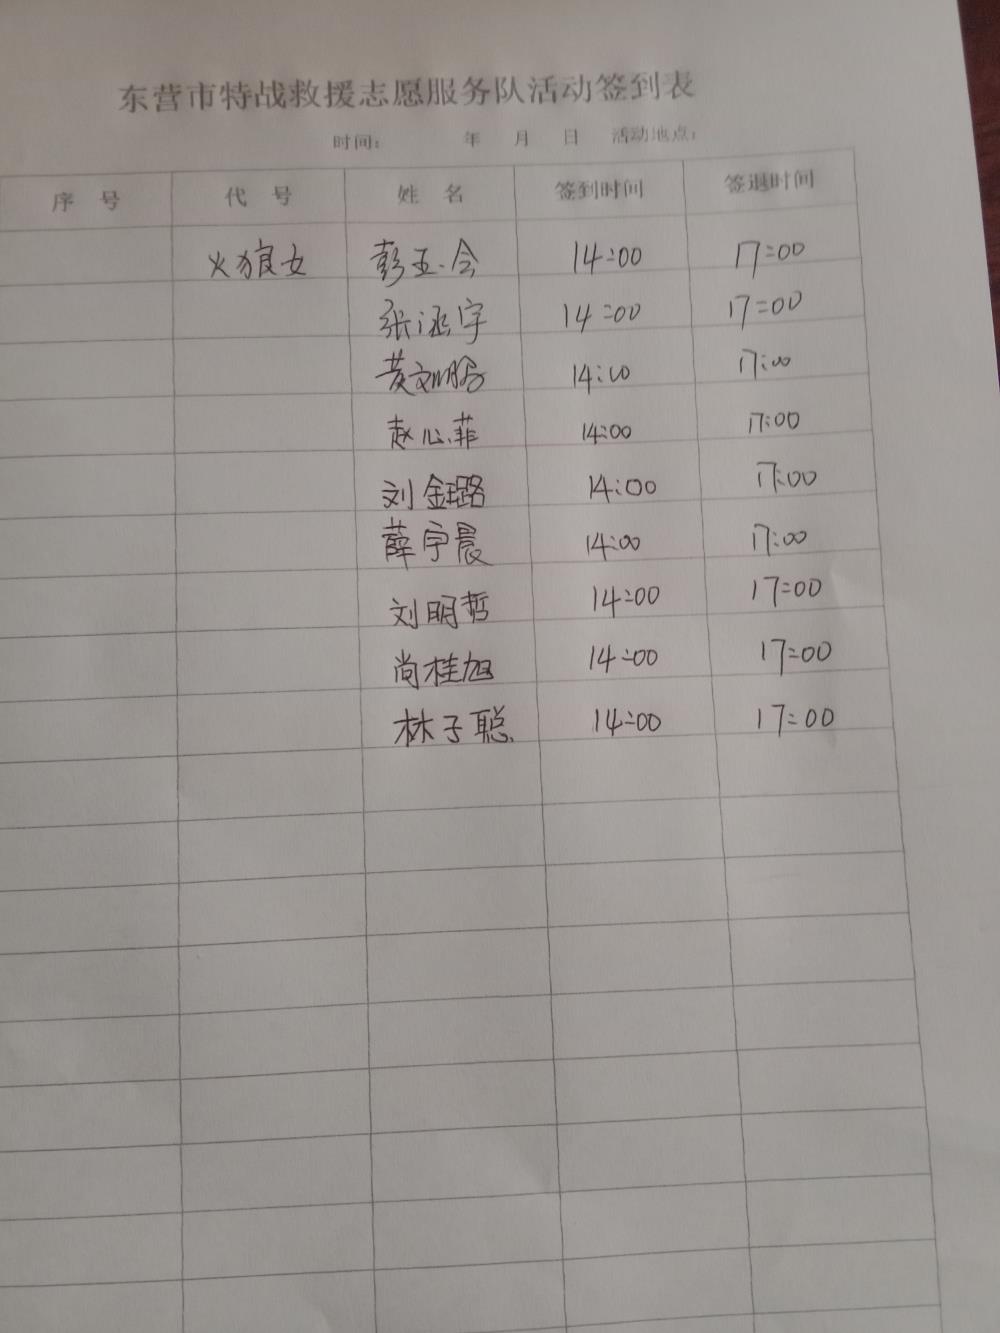 东营市特战救援志愿服务队活动签到表
时间： 年 月 日 活动地点：
序号 代号 姓名 签到时间 签退时间
火狼女 彭玉会 14:00 17:00
张涵宇 14:00 17:00
黄 14:00 17:00
赵心菲 14:00 17:00
刘钰璐 14:00 17:00
薛宇晨 14:00 17:00
刘明哲 14:00 17:00
尚桂旭 14:00 17:00
林子聪 14:00 17:00